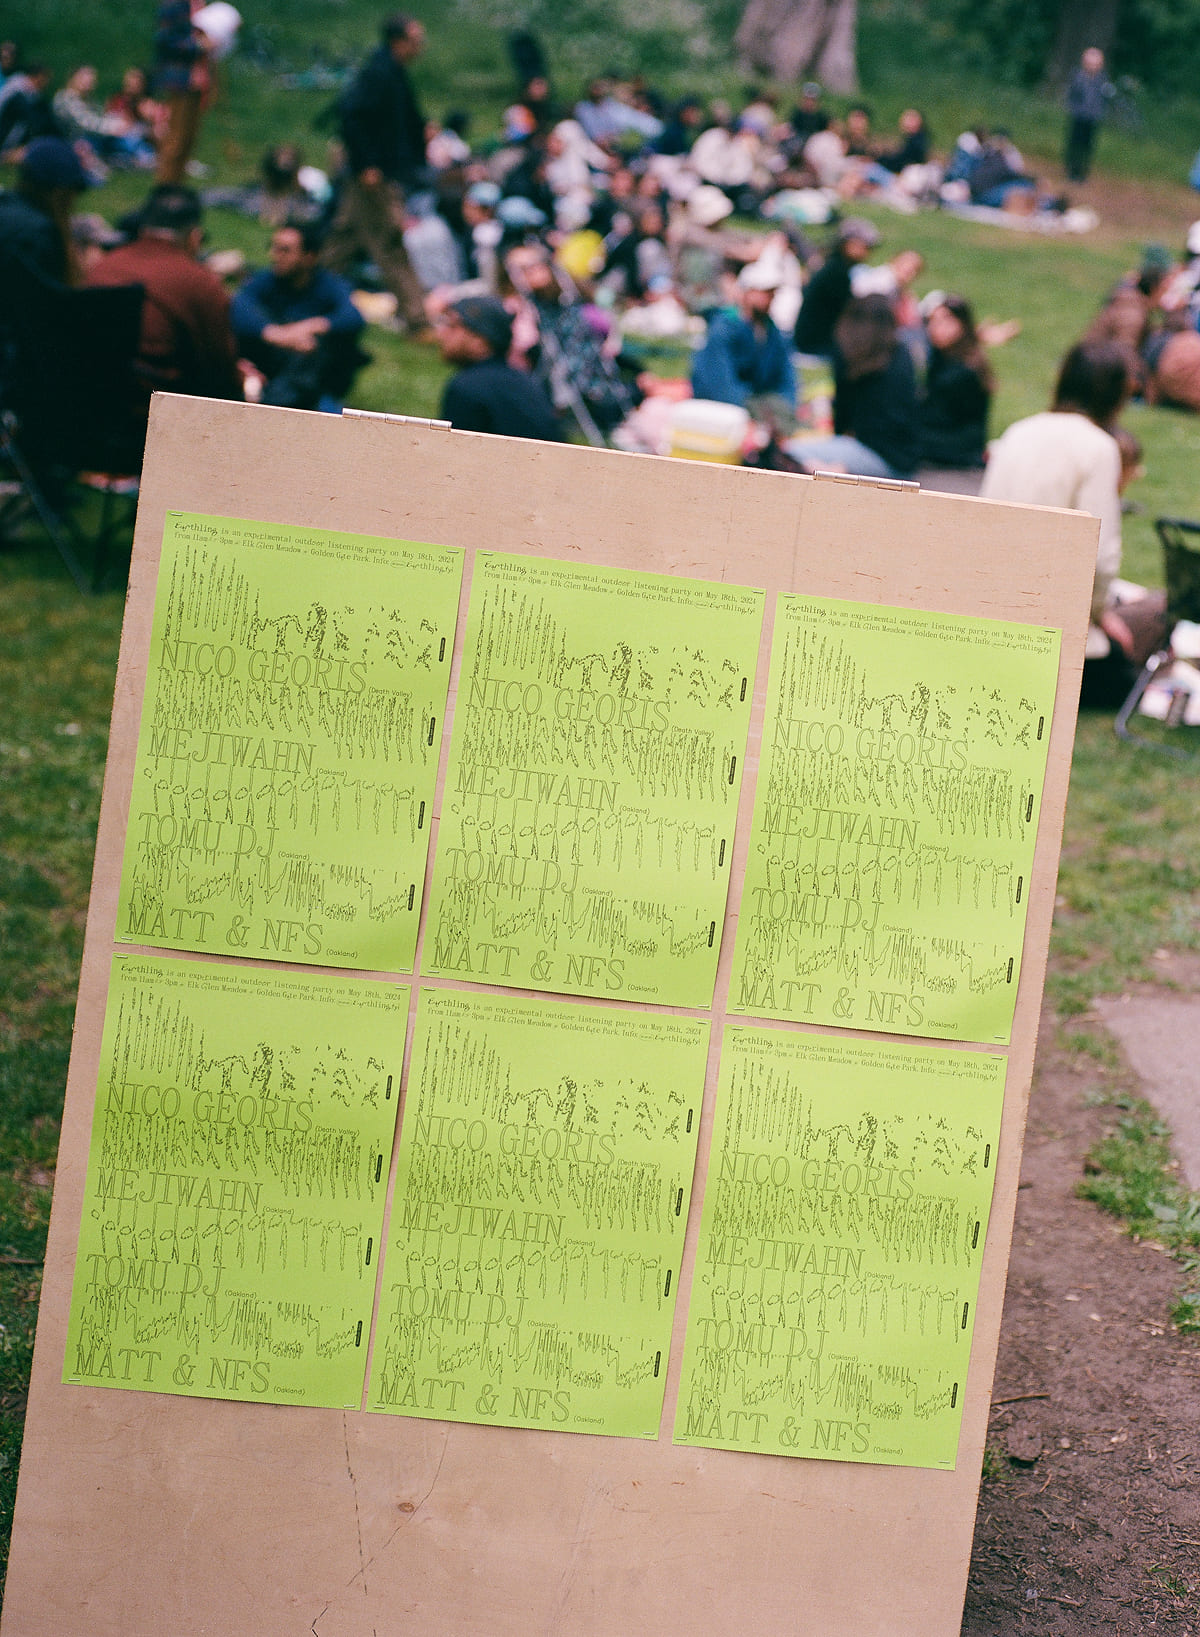 Earthling is an experimental outdoor listening party on May 18th, 2024
from 11am to 3pm at Elk Glen Meadow in Golden Gate Park. Info: www.Earthling.fyi
NICO GEORIS (Death Valley)
MEJIWAHN (Oakland)
TOMU DJ (Oakland)
MATT & NFS (Oakland)
Earthling is an experimental outdoor listening party on May 18th, 2024
from 11am to 3pm at Elk Glen Meadow in Golden Gate Park. Info: www.Earthling.fyi
NICO GEORIS (Death Valley)
MEJIWAHN (Oakland)
TOMU DJ (Oakland)
MATT & NFS (Oakland)
Earthling is an experimental outdoor listening party on May 18th, 2024
from 11am to 3pm at Elk Glen Meadow in Golden Gate Park. Info: www.Earthling.fyi
NICO GEORIS (Death Valley)
MEJIWAHN (Oakland)
TOMU DJ (Oakland)
MATT & NFS (Oakland)
Earthling is an experimental outdoor listening party on May 18th, 2024
from 11am to 3pm at Elk Glen Meadow in Golden Gate Park. Info: www.Earthling.fyi
NICO GEORIS (Death Valley)
MEJIWAHN (Oakland)
TOMU DJ (Oakland)
MATT & NFS (Oakland)
Earthling is an experimental outdoor listening party on May 18th, 2024
from 11am to 3pm at Elk Glen Meadow in Golden Gate Park. Info: www.Earthling.fyi
NICO GEORIS (Death Valley)
MEJIWAHN (Oakland)
TOMU DJ (Oakland)
MATT & NFS (Oakland)
Earthling is an experimental outdoor listening party on May 18th, 2024
from 11am to 3pm at Elk Glen Meadow in Golden Gate Park. Info: www.Earthling.fyi
NICO GEORIS (Death Valley)
MEJIWAHN (Oakland)
TOMU DJ (Oakland)
MATT & NFS (Oakland)